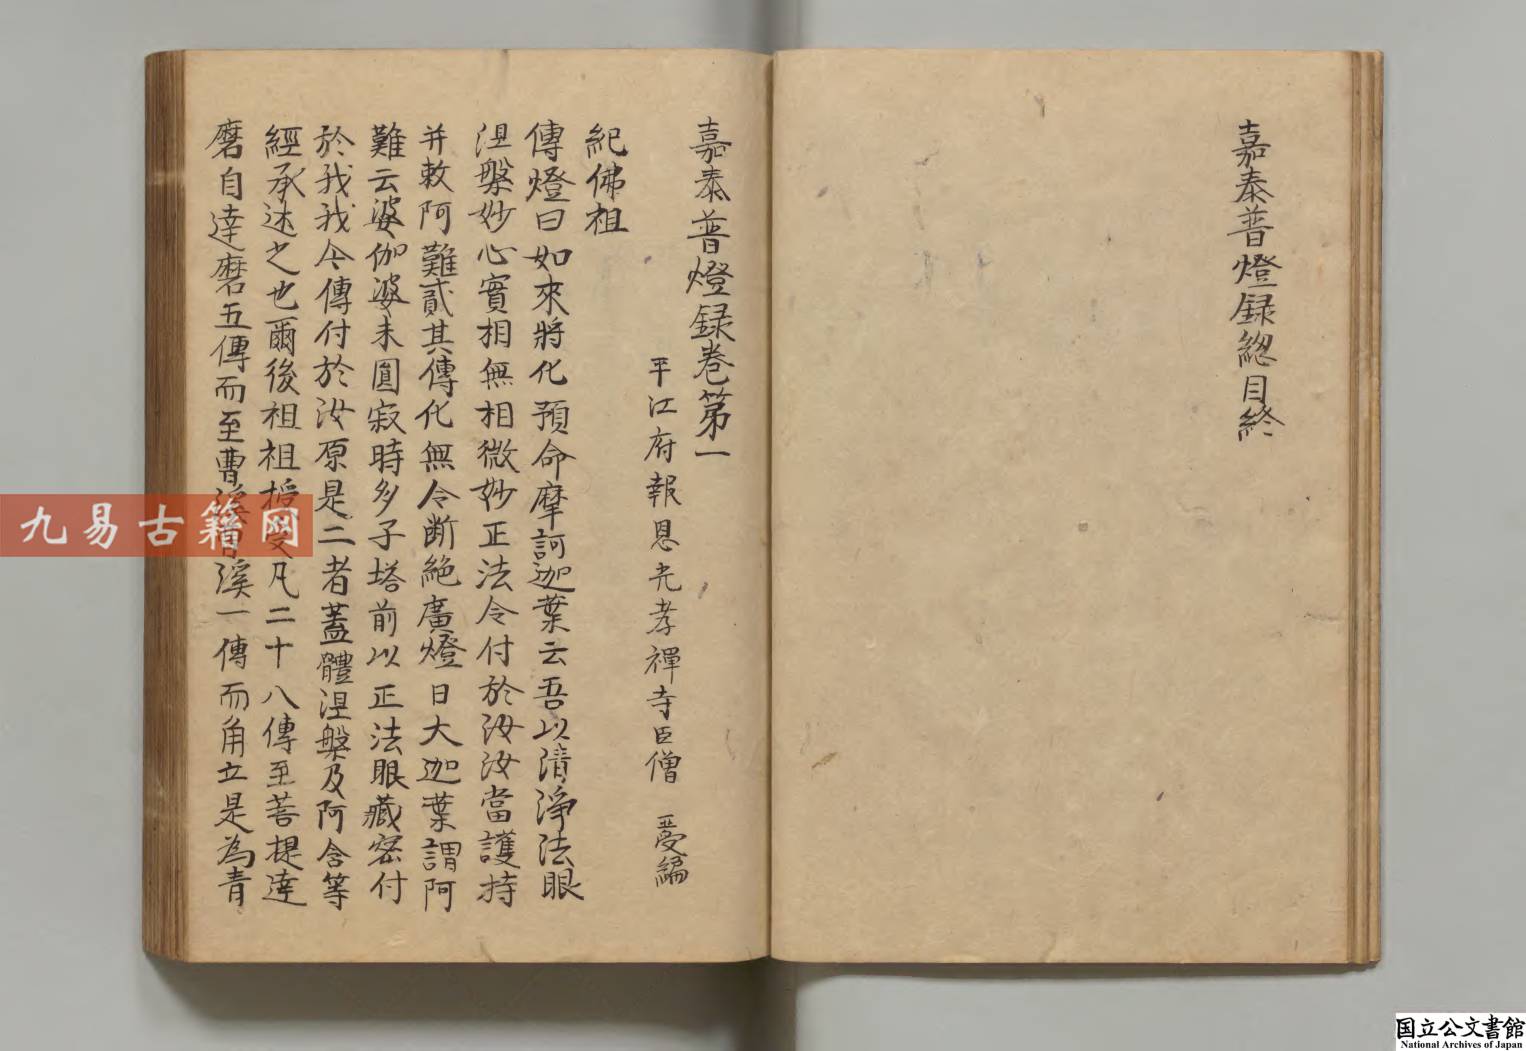 嘉泰普燈録緫目終
嘉泰普燈録卷第一
平江府報恩光孝禪寺臣僧 編
紀佛祖
傳燈曰如來將化預命摩訶迦葉云吾以清淨法眼
涅槃妙心實相無相微妙正法令付於汝汝當護持
并敕阿難貳其傳化無令断絶廣燈日大迦葉謂阿
難云婆伽婆未圓寂時多子塔前以正法眼藏密付
於我我今傳付於汝原是二者蓋體涅槃及阿含等
經承述之也爾後祖祖授受凡二十八傳至菩提達
磨自達磨五傳而至曹溪曹溪一傳而角立是為青
九易古籍网
国立公文書館
National Archives of Japan